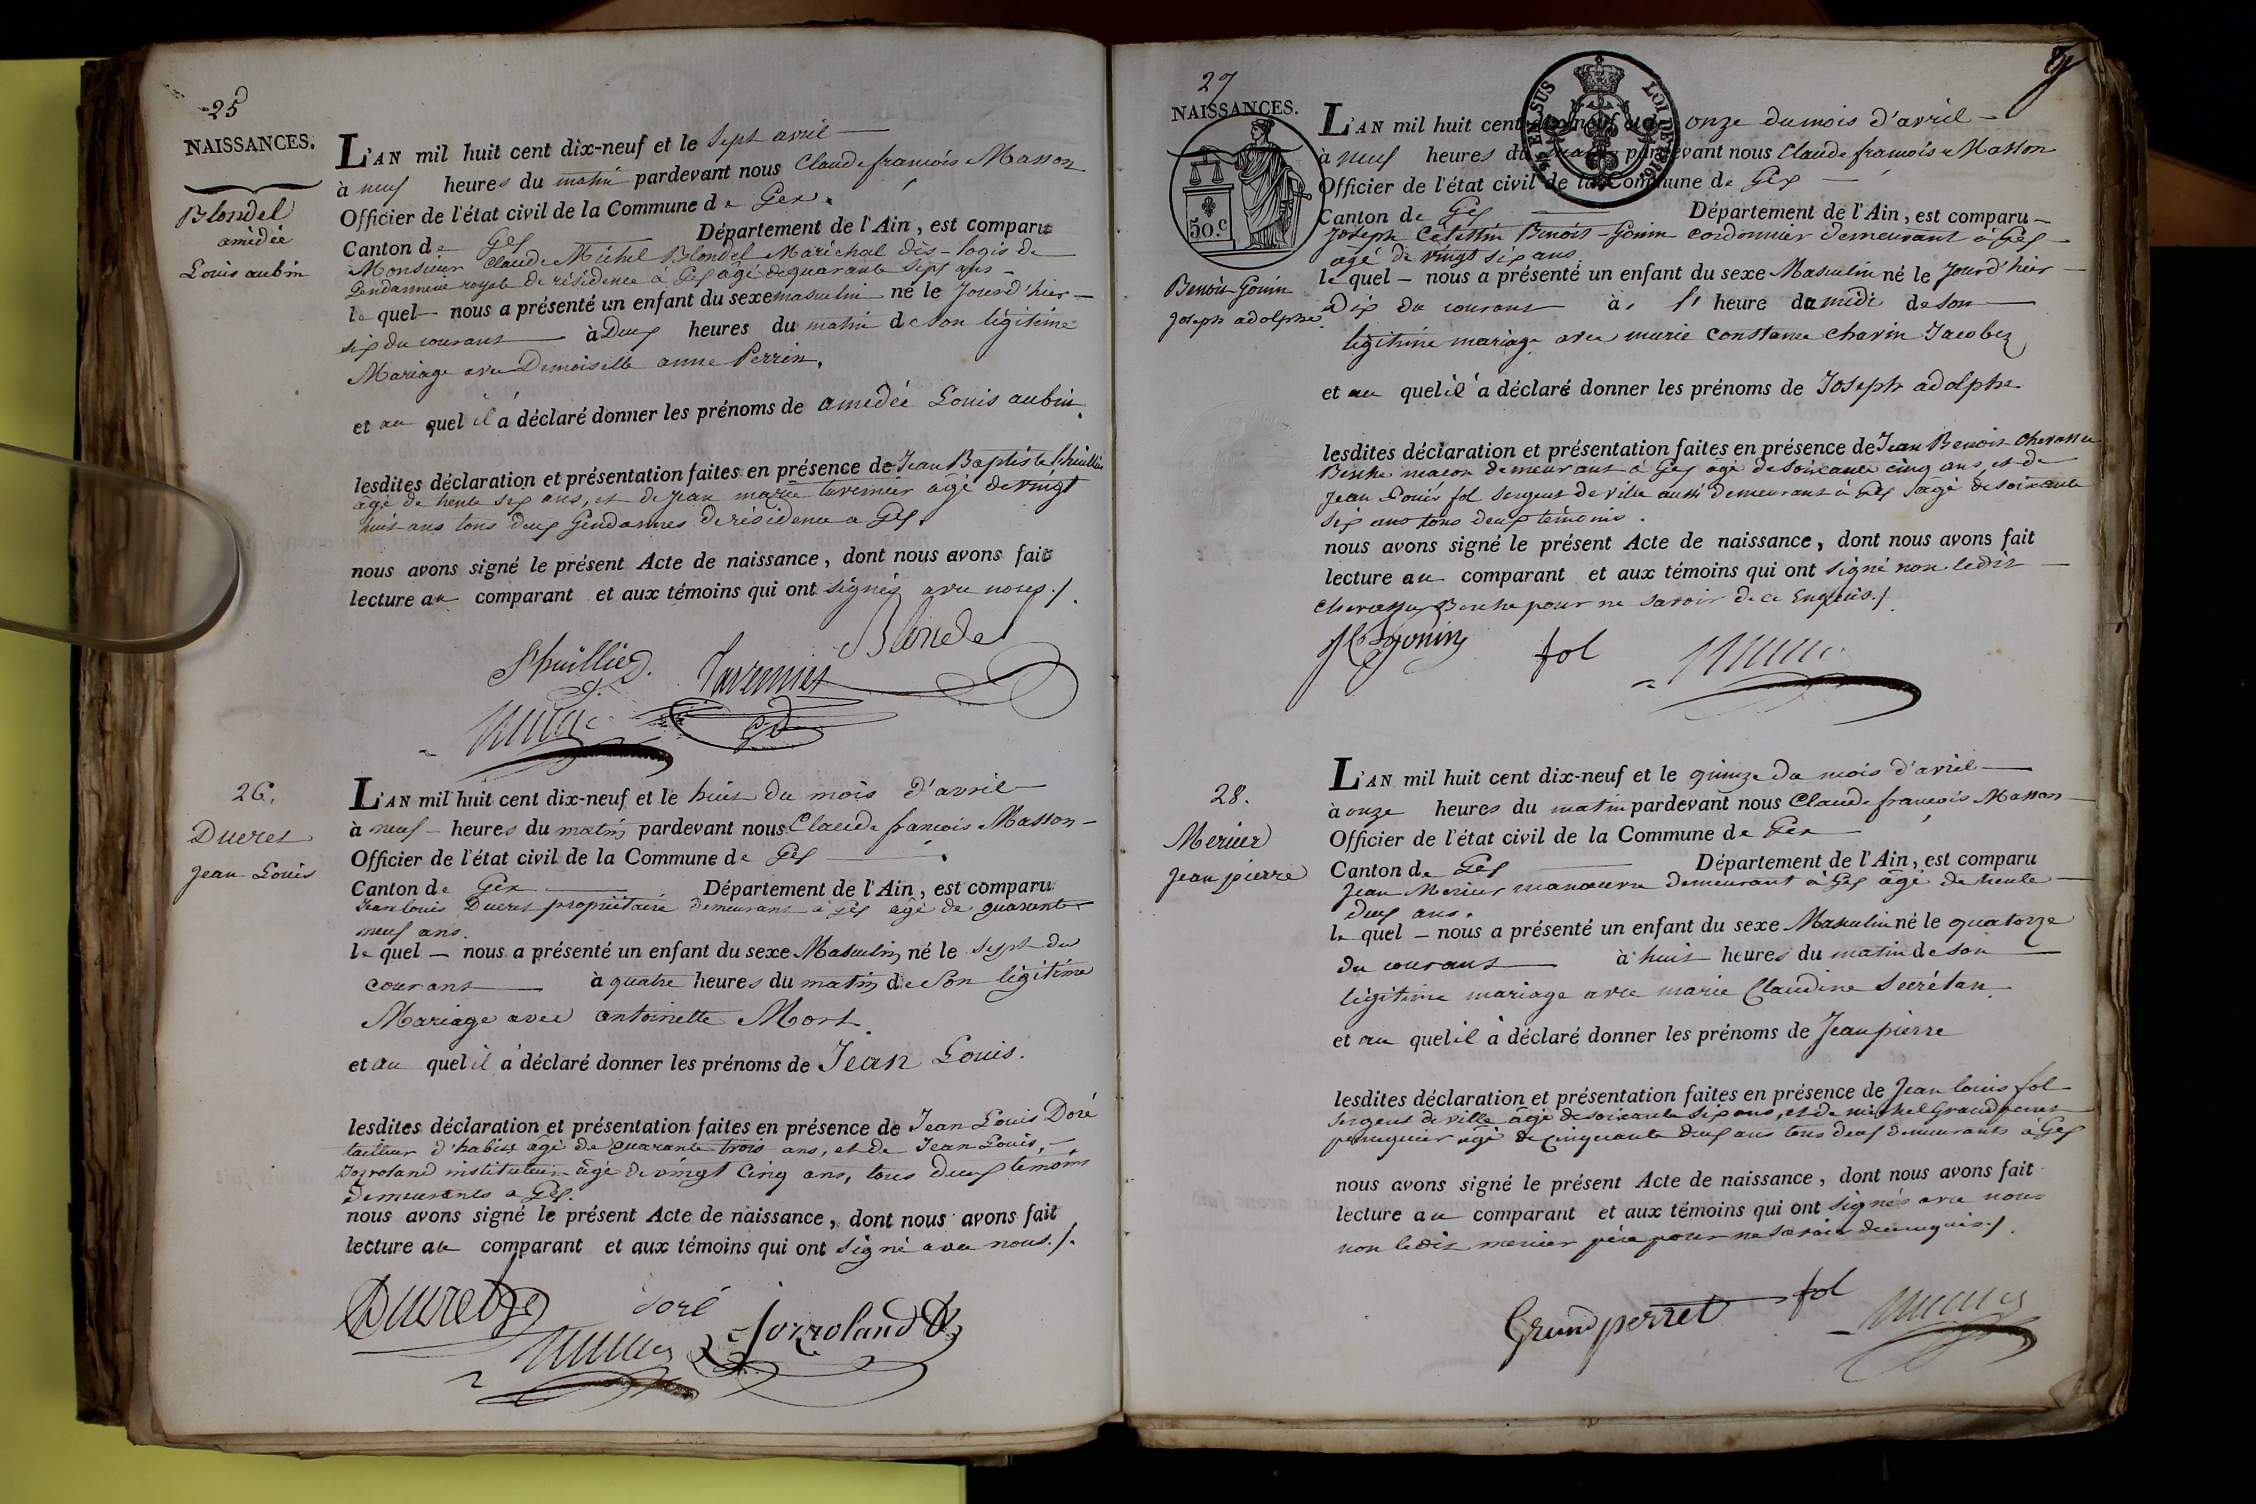 25
NAISSANCES.
Blondel
amédée
Louis aubin
L'AN mil huit cent dix-neuf et le sept avril
à neuf heures du matin pardevant nous Claude francois Masson
Officier de l'état civil de la Commune de Gex.
Canton de Gex Département de l'Ain, est comparu
Monsieur Claude Michel Blondel Maréchal des-logis de
Gendarmerie royale de résidence à Gex âgé de quarante sept ans
le quel nous a présenté un enfant du sexe masculin né le Jourd'hier
six du courant à Deux heures du matin de son légitime
Mariage avec Demoiselle anne Perrin.
et au quel il a déclaré donner les prénoms de amedée Louis aubin.
lesdites déclaration et présentation faites en présence de Jean Baptiste
âgé de trente six ans, et de jean marie tavernier âgé de vingt
huit ans tous deux Gendarmes de résidence a Gex.
nous avons signé le présent Acte de naissance, dont nous avons fait
lecture au comparant et aux témoins qui ont signés avec nous./.
Blondel
Tavernier
26.
Ducret
jean Louis
L'AN mil huit cent dix-neuf et le huit du mois d'avril
à neuf heures du matin pardevant nous Claude francois Masson
Officier de l'état civil de la Commune de Gex
Canton de Gex Département de l'Ain, est comparu
Jean louis Ducret propriétaire demeurant à Gex âgé de quarante
neuf ans.
le quel nous a présenté un enfant du sexe Masculin né le sept du
courant à quatre heures du matin de son légitime
Mariage avec antoinette Mort.
et au quel il a déclaré donner les prénoms de Jean Louis.
lesdites déclaration et présentation faites en présence de Jean Louis Doré
tailleur d'habits âgé de quarante trois ans, et de Jean Louis
Jozroland instituteur âgé de vingt cinq ans, tous deux témoins
demeurants a Gex.
nous avons signé le présent Acte de naissance, dont nous avons fait
lecture au comparant et aux témoins qui ont signé avec nous./.
Ducret
doré
Jozroland
27
NAISSANCES.
50.c
Benoit Gonin
Joseph adolphe
EN SUS
LOI DE 1816
L'AN mil huit cent dix-neuf et le onze du mois d'avril
à neuf heures du matin pardevant nous Claude francois Masson
Officier de l'état civil de la Commune de Gex
Canton de Gex Département de l'Ain, est comparu
Joseph Célestin Benoit-Gonin cordonnier demeurant à Gex
agé de vingt six ans
le quel nous a présenté un enfant du sexe Masculin né le Jourd'hier
Dix du courant à l'heure du midi de son
légitime mariage avec marie constance chavin Jacobez
et au quel il a déclaré donner les prénoms de Joseph adolphe
lesdites déclaration et présentation faites en présence de Jean Benoit
maçon demeurant à Gex âgé de soixante cinq ans, et de
Jean Louis fol sergent de ville aussi demeurant à Gex âgé de soixante
six ans tous deux témoins.
nous avons signé le présent Acte de naissance, dont nous avons fait
lecture au comparant et aux témoins qui ont signé non ledit
pour ne savoir de ce Enquis./.
gonin
fol
28.
Merier
Jean pierre
L'AN mil huit cent dix-neuf et le quinze du mois d'avril
à onze heures du matin pardevant nous Claude francois Masson
Officier de l'état civil de la Commune de Gex
Canton de Gex Département de l'Ain, est comparu
Jean Merier manœuvre demeurant à Gex âgé de trente
deux ans.
le quel nous a présenté un enfant du sexe Masculin né le quatorze
du courant à huit heures du matin de son
légitime mariage avec marie Claudine Secrétan
et au quel il a déclaré donner les prénoms de Jean pierre
lesdites déclaration et présentation faites en présence de Jean louis fol
sergent de ville âgé de soixante six ans, et de michel Grandperret
perruquier agé de cinquante deux ans tous deux demeurants à Gex
nous avons signé le présent Acte de naissance, dont nous avons fait
lecture au comparant et aux témoins qui ont signés avec nous
non ledit merier père pour ne savoir de ce enquis./.
Grandperret
fol